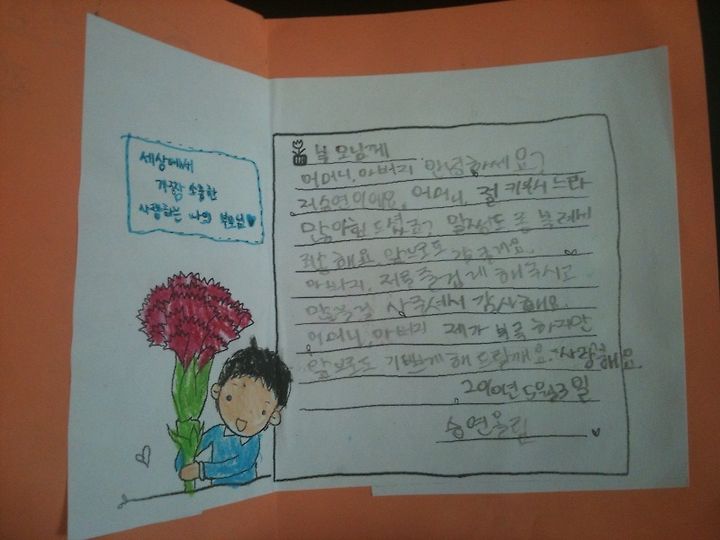 세상에서
가장 소중한
사랑하는 나의 부모님♥
부모님께
어머니, 아버지 안녕하세요?
저 승연이에요. 어머니, 절 키워서 느라
많이 힘드셨죠? 말씀도 좀
죄송해요. 앞으로도
아버지, 저를 즐겁게 해 주시고
맛있는걸 사주셔서 감사해요.
어머니, 아버지 제가 부족하지만
앞으로도 기쁘게 해 드릴께요. 사랑해요.
2010년 5월3일
승연올림